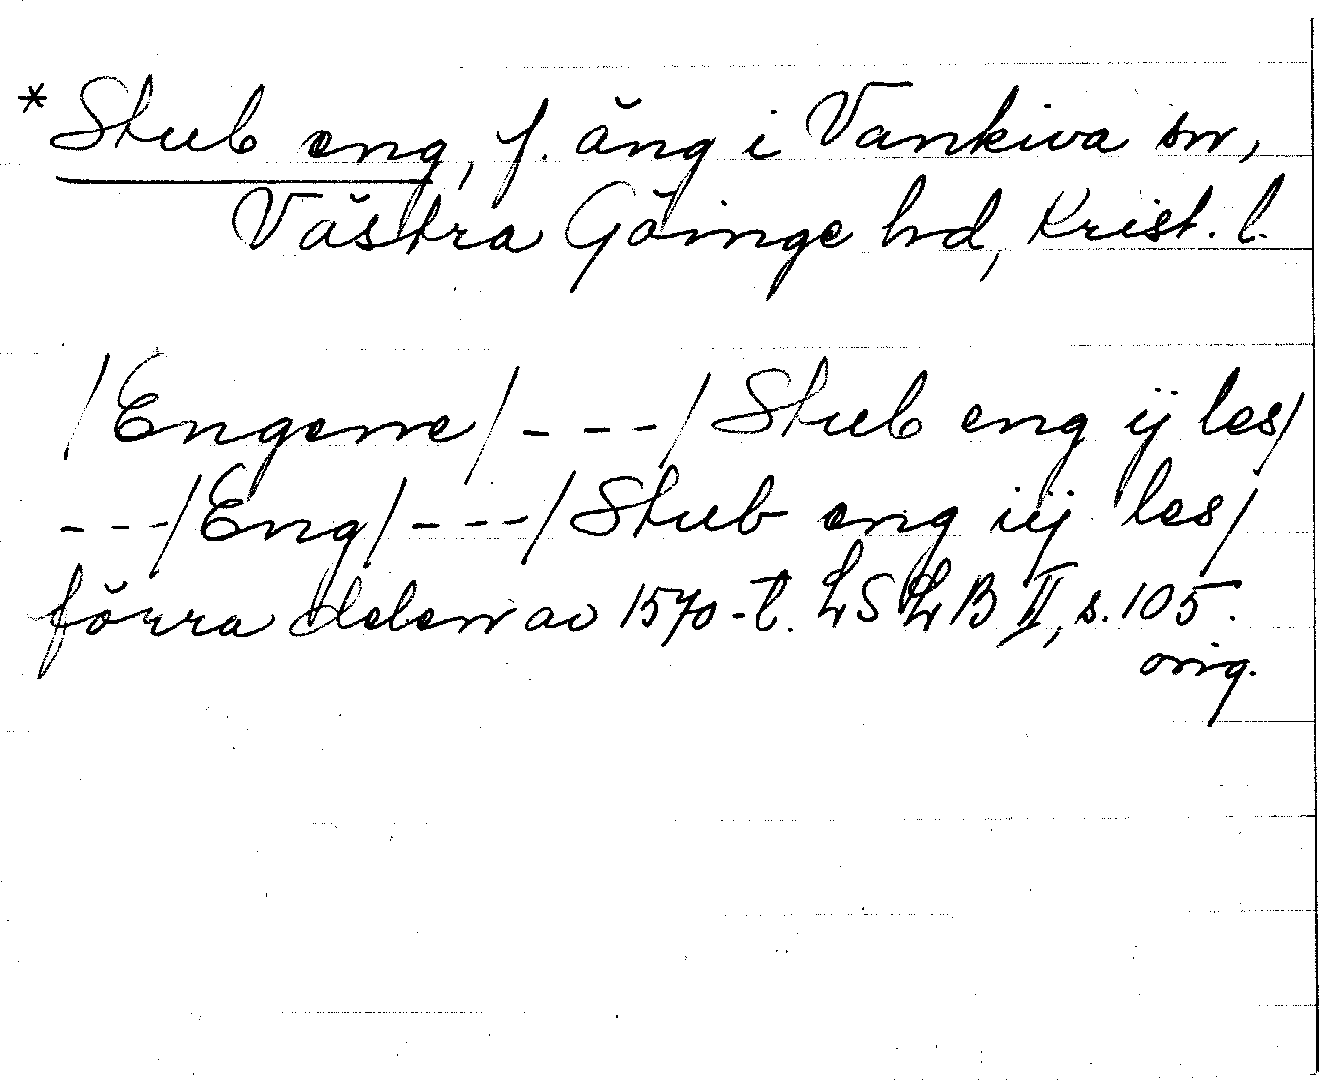 * Stub eng, f. äng i Vankiva sn,
Västra Göinge hd, Krist. l.
/Engenne/ --- /Stub eng ij les/
--- /Eng/ --- /Stub eng iij les/
förra delen av 1570-t. LSLB II, s. 105.
orig.